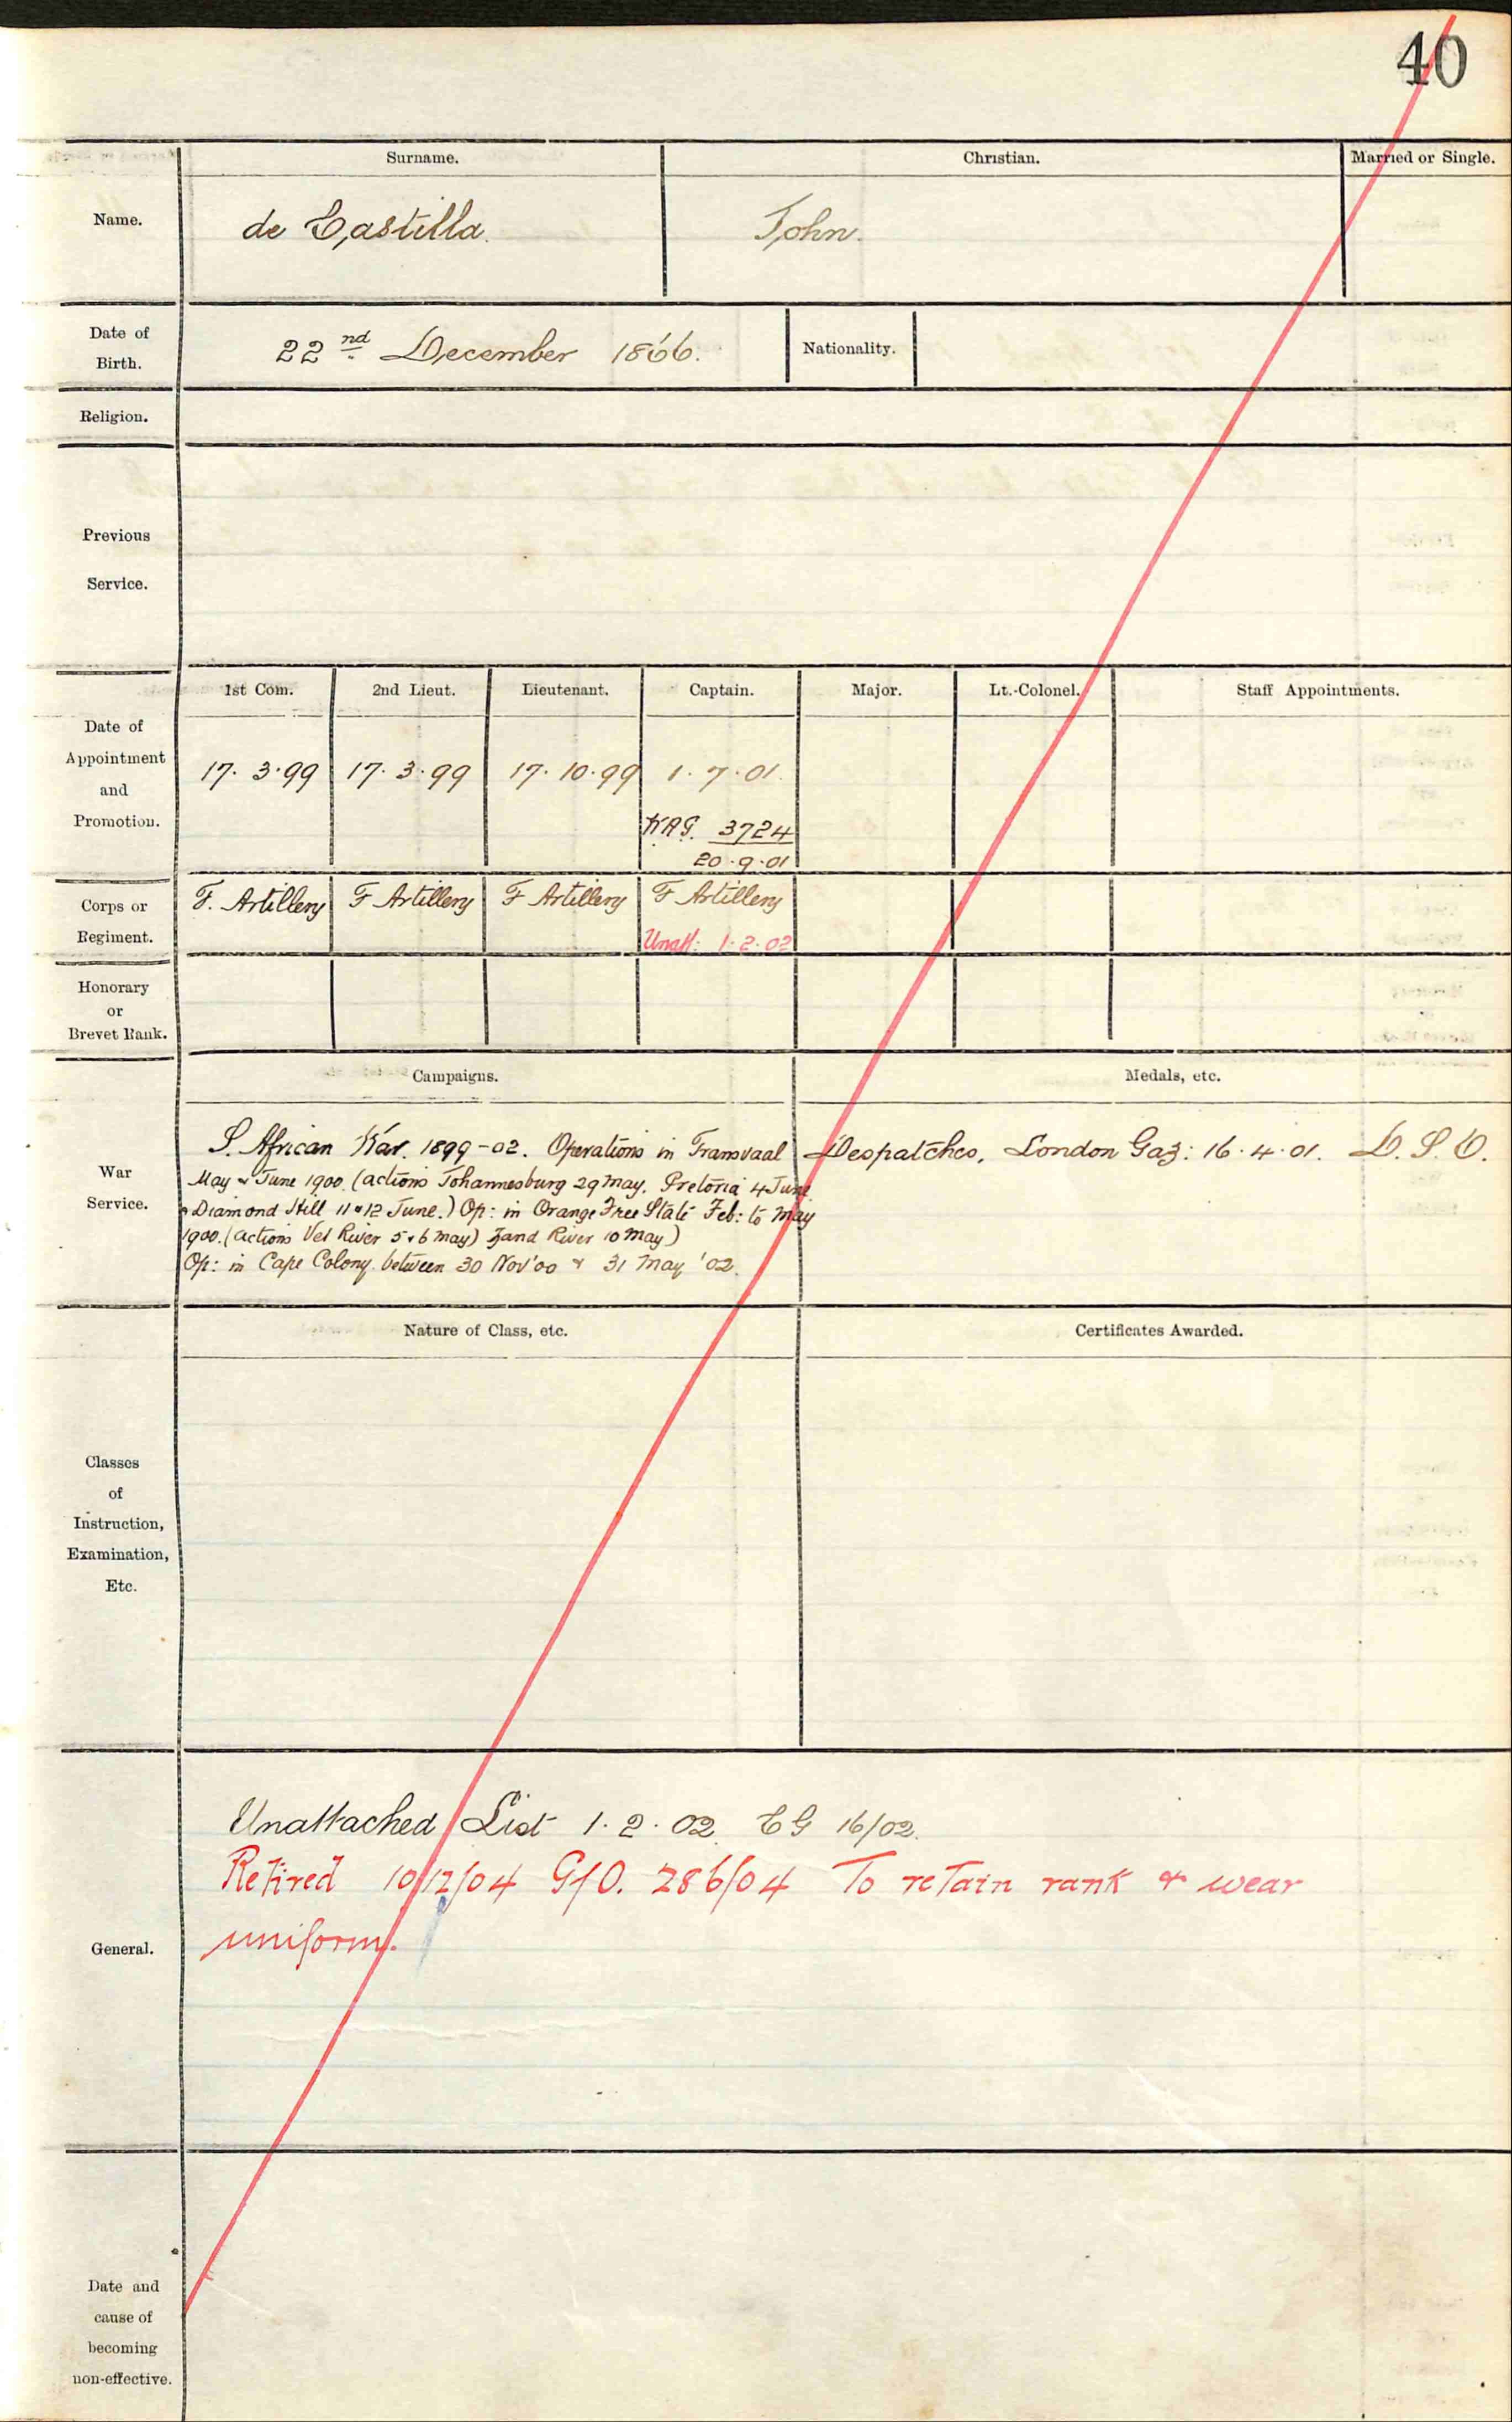 40
Surname. Christian. Married or Single.
Name. de Castilla. John.
Date of Birth. 22nd December 1866. Nationality.
Religion.
Previous
Service.
1st Com. 2nd Lieut. Lieutenant. Captain. Major. Lt.-Colonel. Staff Appointments.
Date of
Appointment
and
Promotion.
17.3.99 17.3.99 17.10.99 1.7.01.
3724
20.9.01
Corps or
Regiment.
F. Artillery F Artillery F Artillery F Artillery
Unatt: 1.2.02
Honorary
or
Brevet Rank.
Campaigns. Medals, etc.
War
Service.
S. African War. 1899-02. Operations in Transvaal
May & June 1900. (actions Johannesburg 29 May. Pretoria 4 June
& Diamond Hill 11 & 12 June.) Op: in Orange Free State Feb: to May
1900. (actions Vet River 5 & 6 May) Zand River 10 May)
Op: in Cape Colony between 30 Nov '00 & 31 May '02.
Despatches, London Gaz: 16.4.01. D.S.O.
Nature of Class, etc. Certificates Awarded.
Classes
of
Instruction,
Examination,
Etc.
General.
Unattached List 1.2.02. GG 16/02.
Retired 10/12/04 G/O. 286/04 To retain rank & wear
uniform.
Date and
cause of
becoming
non-effective.